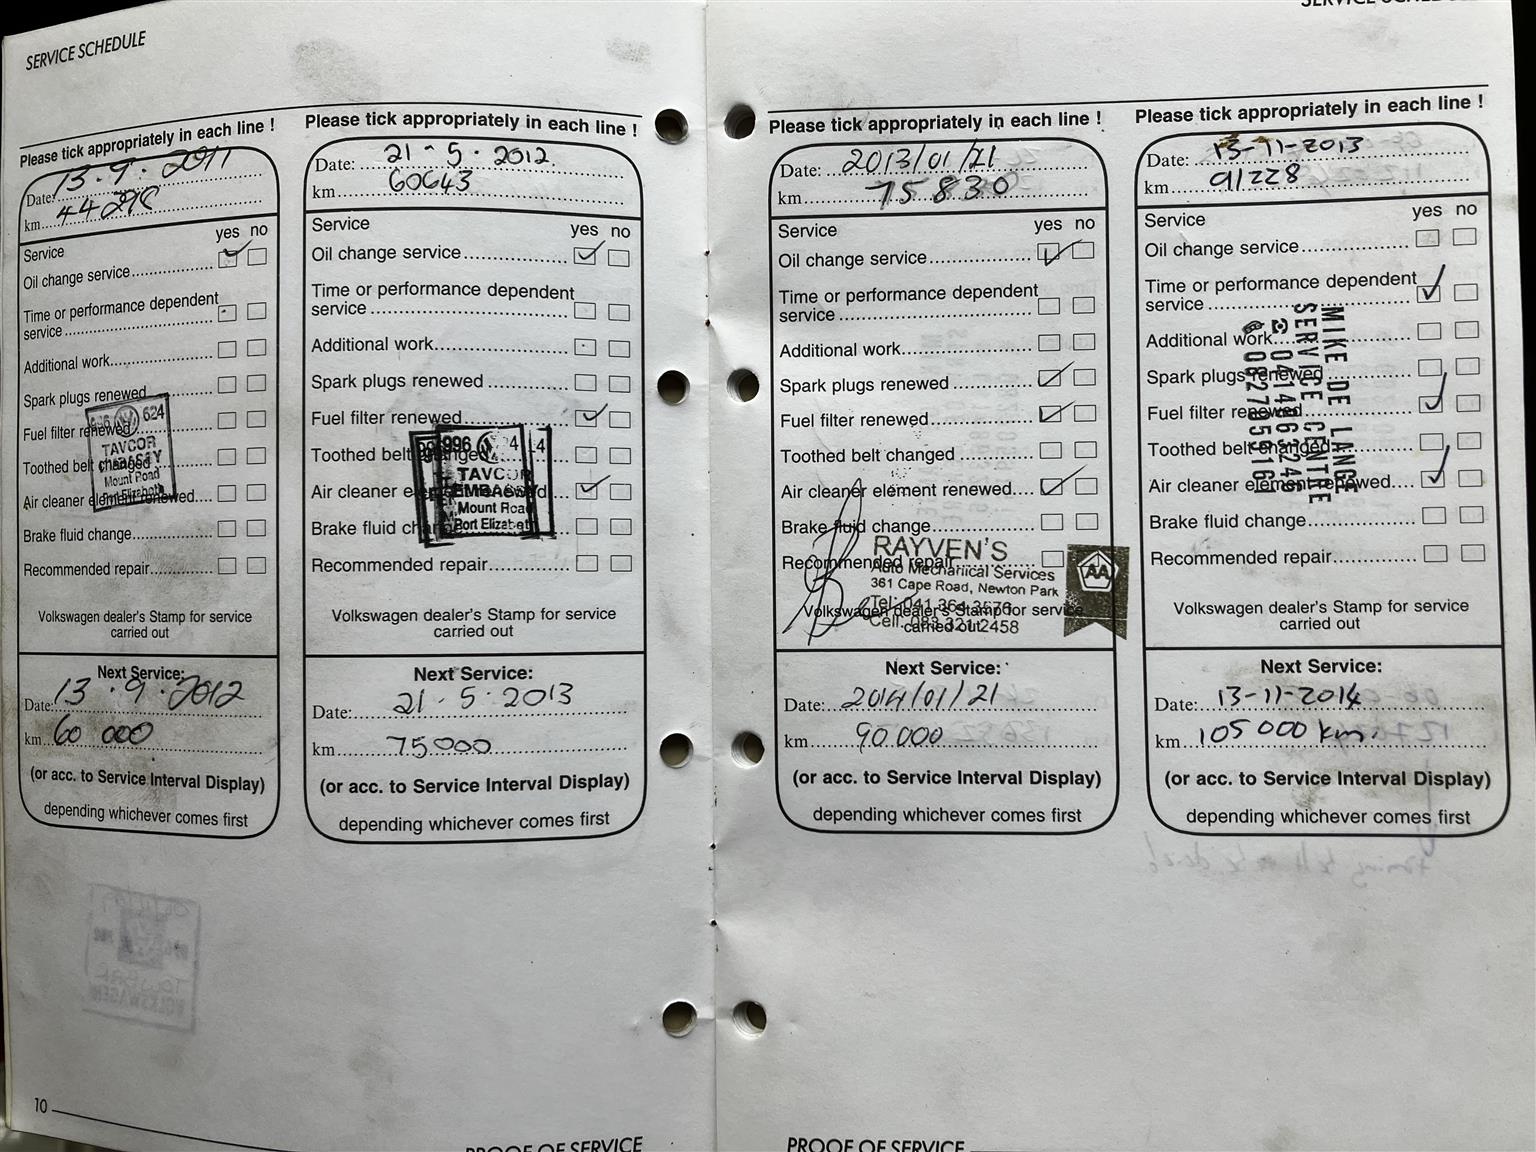 SERVICE SCHEDULE
Please tick appropriately in each line !
Date: 13.9.2011
km
Service
yes no
Oil change service
Time or performance dependent
service
Additional work
Spark plugs renewed
Fuel filter renewed
Toothed belt changed
Air cleaner element renewed
Brake fluid change
Recommended repair
624
TAVCOR
EMBASSY
Mount Road
Port Elizabeth
Volkswagen dealer's Stamp for service
carried out
Next Service:
Date: 13.9.2012
km 60 000
(or acc. to Service Interval Display)
depending whichever comes first
10
Please tick appropriately in each line !
Date: 21-5.2012
km 60643
Service
yes no
Oil change service
Time or performance dependent
service
Additional work
Spark plugs renewed
Fuel filter renewed
Toothed belt changed
Air cleaner element renewed
Brake fluid change
Recommended repair
996
TAVCOR
EMBASSY
Mount Road
Port Elizabeth
Volkswagen dealer's Stamp for service
carried out
Next Service:
Date: 21.5.2013
km 75000
(or acc. to Service Interval Display)
depending whichever comes first
PROOF OF SERVICE
Please tick appropriately in each line !
Date: 2013/01/21
km 75830
Service
yes no
Oil change service
Time or performance dependent
service
Additional work
Spark plugs renewed
Fuel filter renewed
Toothed belt changed
Air cleaner element renewed
Brake fluid change
Recommended repair
RAYVEN'S
Auto Mechanical Services
361 Cape Road, Newton Park
Tel: 041 364 2576
Cell: 083 321 2458
AA
Volkswagen dealer's Stamp for service
carried out
Next Service:
Date: 2014/01/21
km 90000
(or acc. to Service Interval Display)
depending whichever comes first
PROOF OF SERVICE
SERVICE SCHEDULE
Please tick appropriately in each line !
Date: 13-11-2013
km 91228
yes no
Service
Oil change service
Time or performance dependent
service
Additional work
Spark plugs renewed
Fuel filter renewed
Toothed belt changed
Air cleaner element renewed
Brake fluid change
Recommended repair
MIKE DE LANGE
SERVICE CENTRE
Volkswagen dealer's Stamp for service
carried out
Next Service:
Date: 13-11-2014
km 105 000 km.
(or acc. to Service Interval Display)
depending whichever comes first